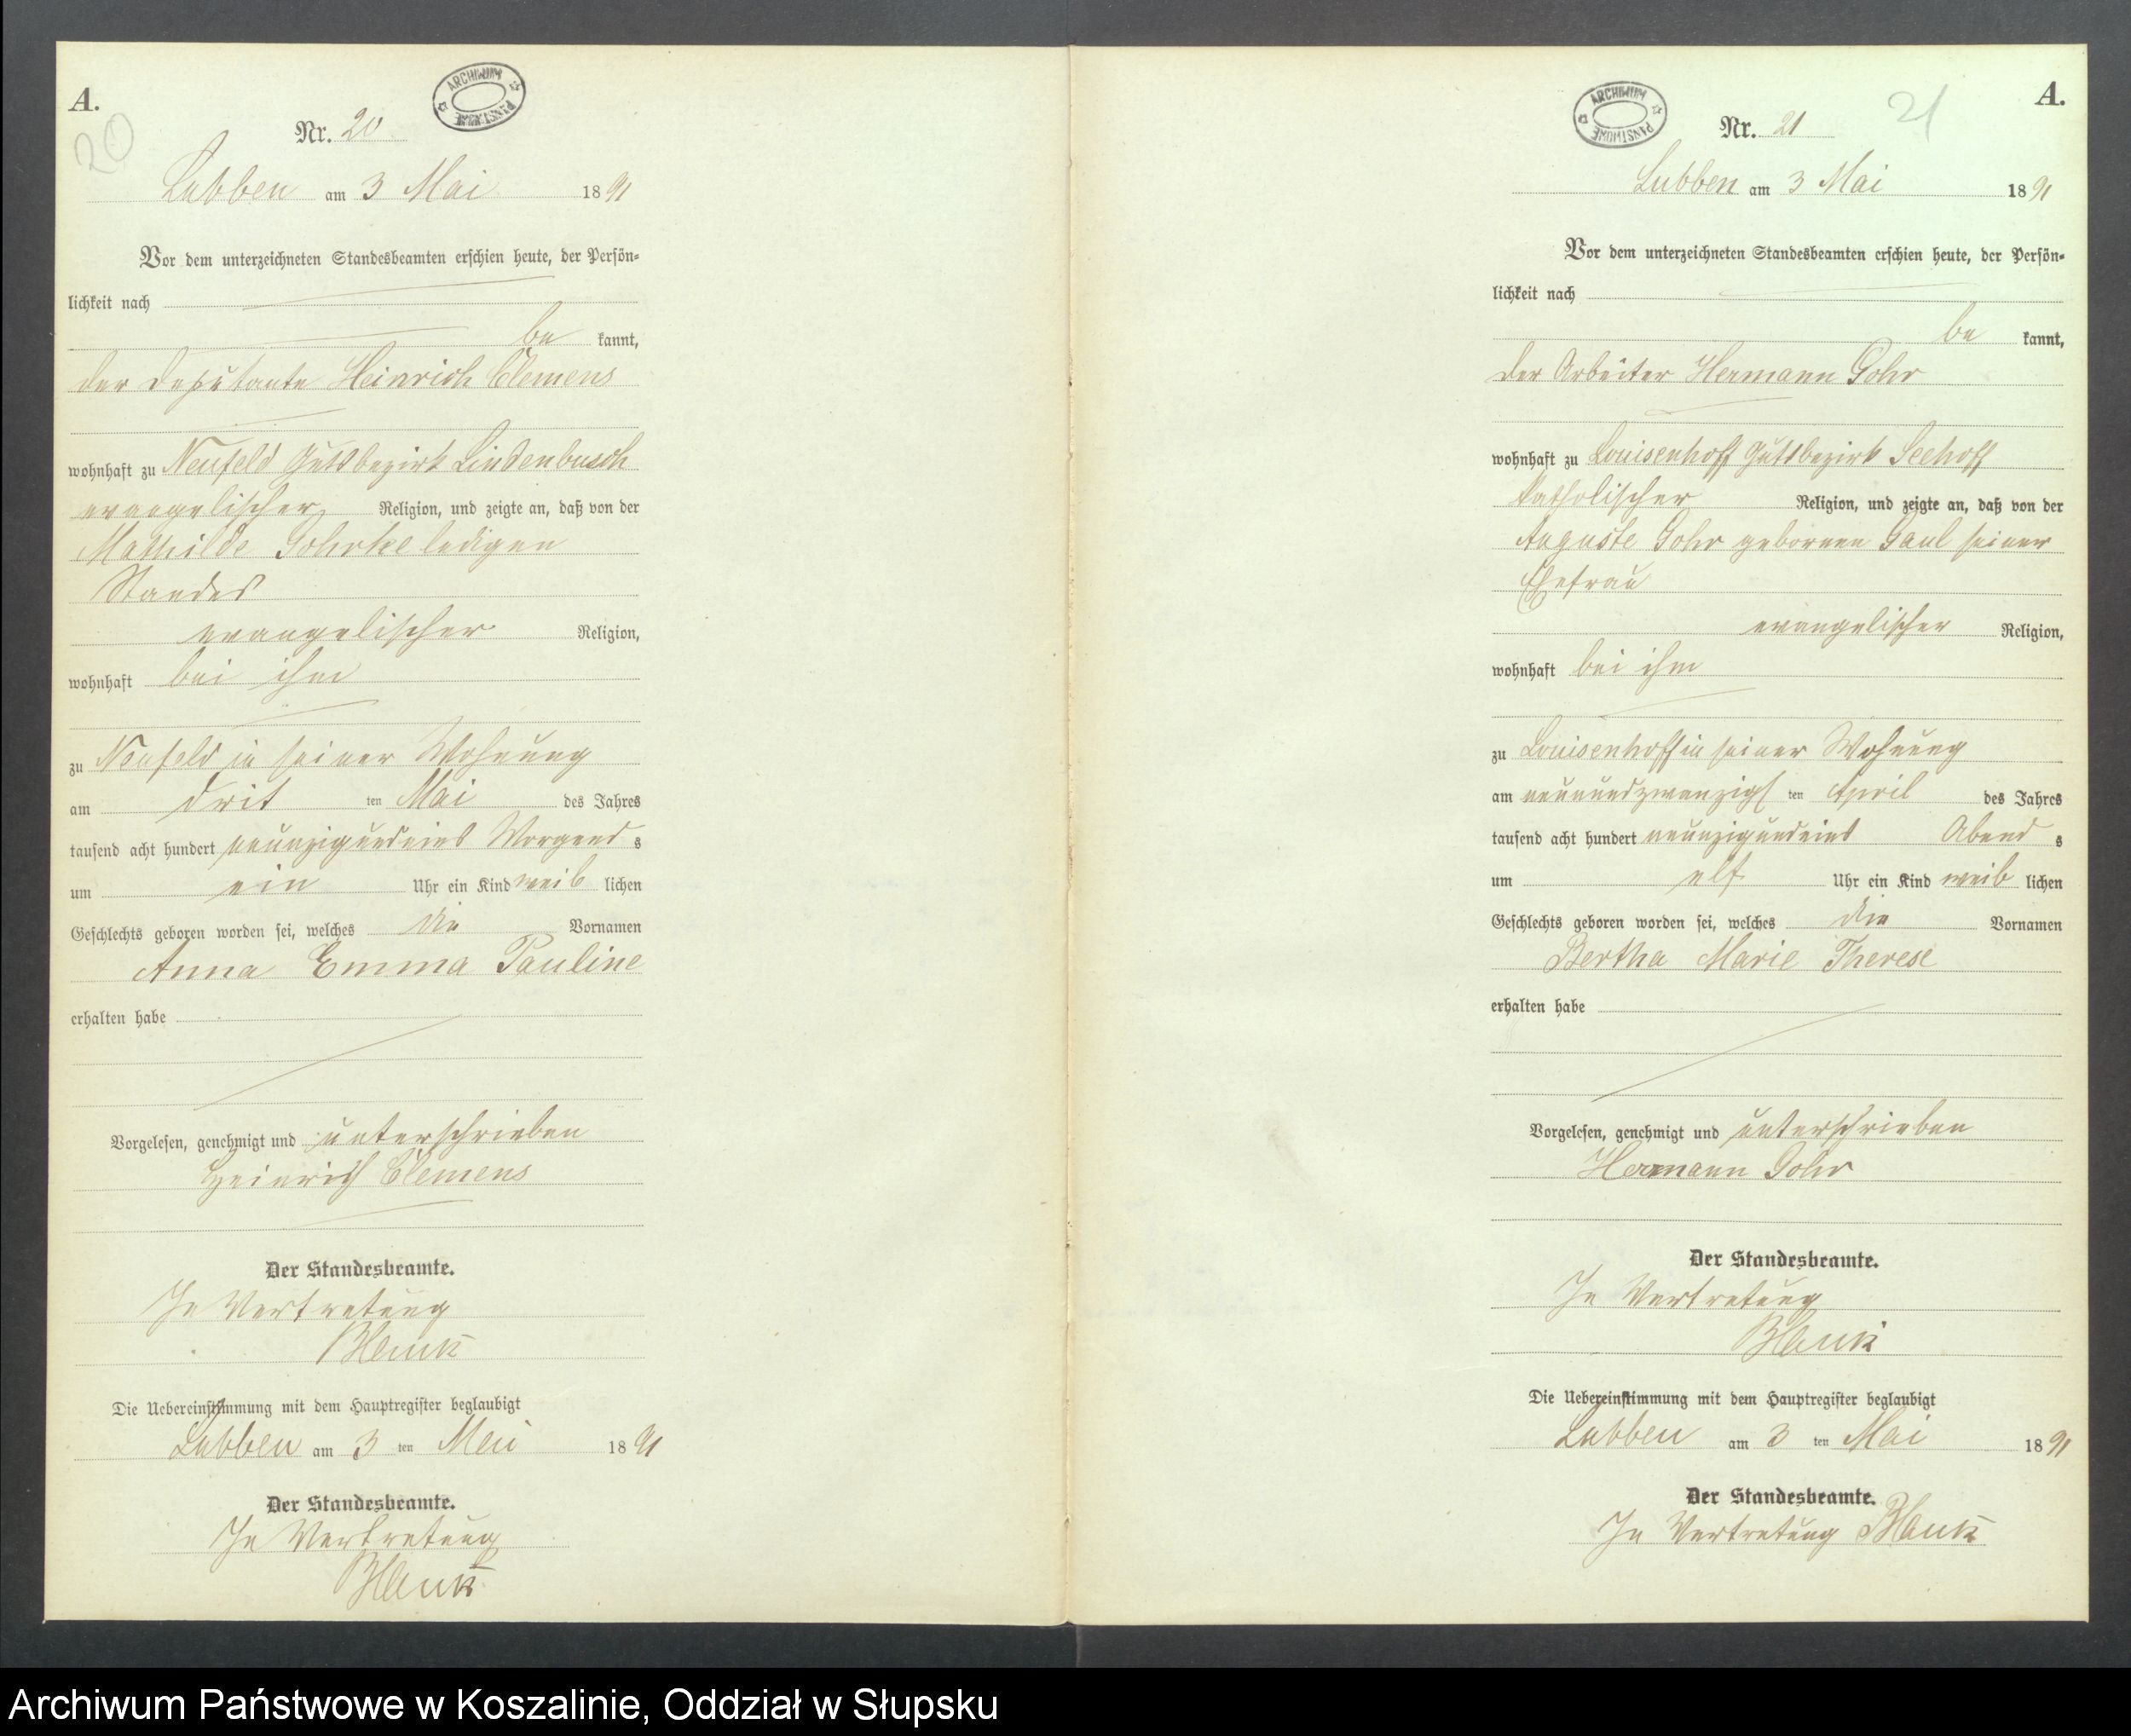 A.
20
ARCHIWUM PAŃSTWOWE
Nr. 20
Lubben am 3 Mai 1891
Vor dem unterzeichneten Standesbeamten erschien heute, der Persön-
lichkeit nach
be kannt,
der Deputante Heinrich Clemens
wohnhaft zu Neufeld Gutsbezirk Lindenbusch
evangelischer Religion, und zeigte an, daß von der
Mathilde Gohrke ledigen
Standes
evangelischer Religion,
wohnhaft bei ihm
zu Neufeld in seiner Wohnung
am drit ten Mai des Jahres
tausend acht hundert neunzigundeins Morgend s
um ein Uhr ein Kind weib lichen
Geschlechts geboren worden sei, welches die Vornamen
Anna Emma Pauline
erhalten habe
Vorgelesen, genehmigt und unterschrieben
Heinrich Clemens
Der Standesbeamte.
In Vertretung
Die Uebereinstimmung mit dem Hauptregister beglaubigt
Lubben am 3 ten Mai 1891
Der Standesbeamte.
In Vertretung
A.
21
ARCHIWUM PAŃSTWOWE
Nr. 21
Lubben am 3 Mai 1891
Vor dem unterzeichneten Standesbeamten erschien heute, der Persön-
lichkeit nach
be kannt,
der Arbeiter Hermann Gohr
wohnhaft zu Louisenhoff Gutsbezirk Seehoff
katholischer Religion, und zeigte an, daß von der
Auguste Gohr gebornen Gaul seiner
Ehefrau
evangelischer Religion,
wohnhaft bei ihm
zu Louisenhoff in seiner Wohnung
am neunundzwanzigs ten April des Jahres
tausend acht hundert neunzigundeins Abend s
um elf Uhr ein Kind weib lichen
Geschlechts geboren worden sei, welches die Vornamen
Bertha Marie Therese
erhalten habe
Vorgelesen, genehmigt und unterschrieben
Hermann Gohr
Der Standesbeamte.
In Vertretung
Die Uebereinstimmung mit dem Hauptregister beglaubigt
Lubben am 3 ten Mai 1891
Der Standesbeamte.
In Vertretung
Archiwum Państwowe w Koszalinie, Oddział w Słupsku